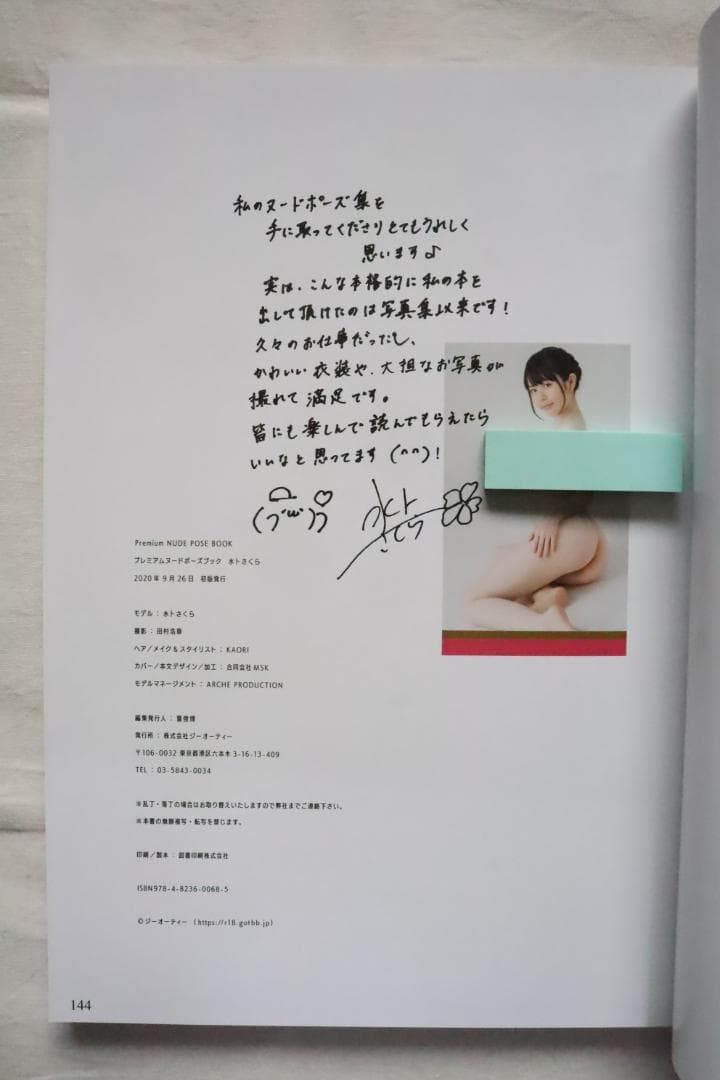 私のヌードポーズ集を
手に取ってくださりとてもうれしく
思います♪
実は、こんな本格的に私の本を
出して頂けたのは写真集以来です！
久々のお仕事だったし、
かわいい衣装や、大担なお写真が
撮れて満足です。
皆にも楽しんで読んでもらえたら
いいなと思ってます(^^)！
水トさくら
Premium NUDE POSE BOOK
プレミアムヌードポーズブック 水トさくら
2020年9月26日 初版発行
モデル：水トさくら
撮影：田村浩章
ヘア／メイク&スタイリスト：KAORI
カバー／本文デザイン／加工：合同会社MSK
モデルマネージメント：ARCHE PRODUCTION
編集発行人：
発行所：株式会社ジーオーティー
〒106-0032 東京都港区六本木3-16-13-409
TEL：03-5843-0034
※乱丁・落丁の場合はお取り替えいたしますので弊社までご連絡下さい。
※本書の無断複写・転写を禁じます。
印刷／製本：図書印刷株式会社
ISBN978-4-8236-0068-5
©ジーオーティー (https://r18.gotbb.jp)
144